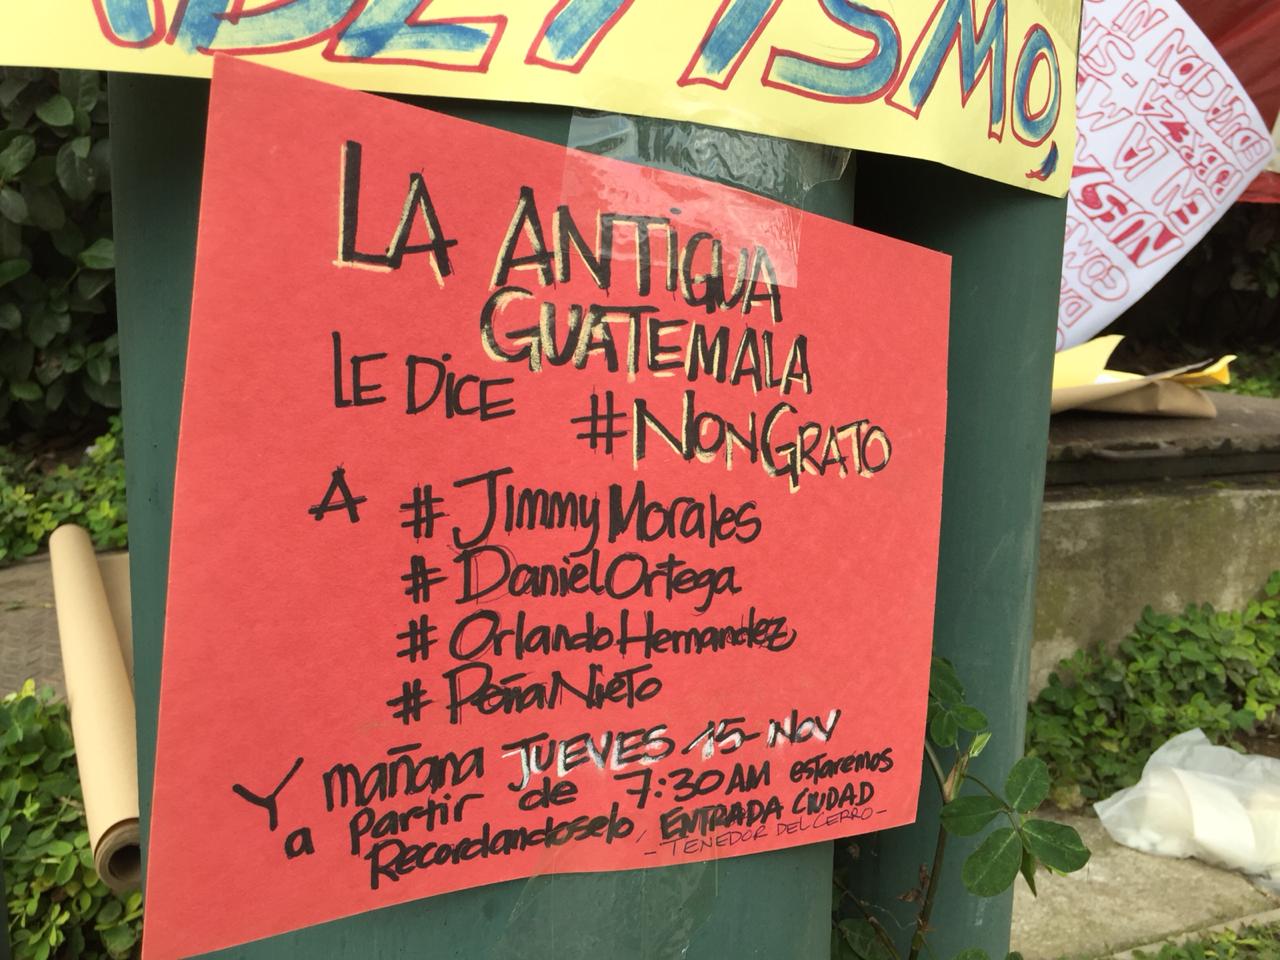 LA ANTIGUA
GUATEMALA
LE DICE #NONGRATO
A #JimmyMorales
#DanielOrtega
#OrlandoHernandez
#PeñaNieto
Y mañana JUEVES 15- NOV
a partir de 7:30 AM estaremos
Recordandoselo ENTRADA CIUDAD
- TENEDOR DEL CERRO -
EN LA